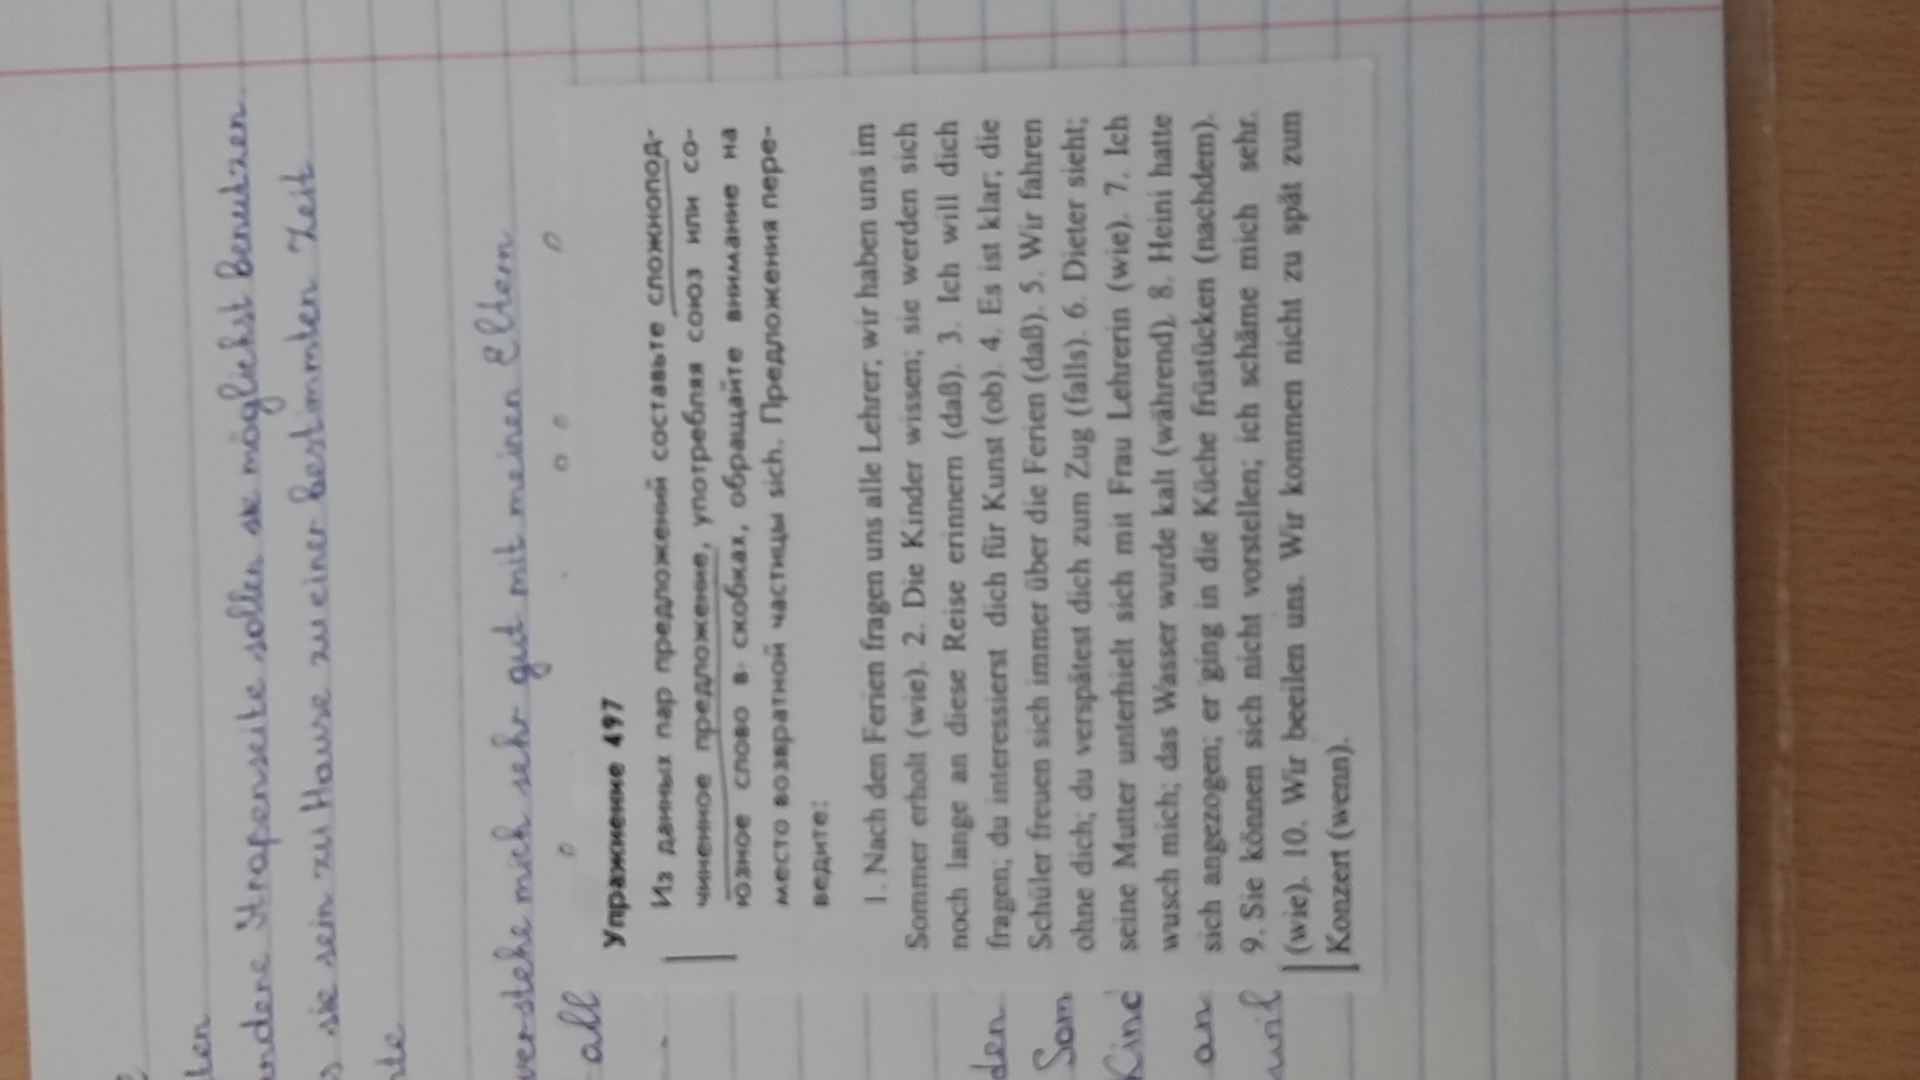 len
undene Strapenseite sollen sie möglichst benutzen.
s sie sein zu Hause zu einer bestimmten Zeit
nte
verstehe mich sehr gut mit meinen Eltern
all
Упражнение 497
Из данных пар предложений составьте сложнопод-
чиненное предложение, употребляя союз или со-
юзное слово в скобках, обращайте внимание на
место возвратной частицы sich. Предложения пере-
ведите:
1. Nach den Ferien fragen uns alle Lehrer; wir haben uns im
Sommer erholt (wie). 2. Die Kinder wissen; sie werden sich
noch lange an diese Reise erinnern (daß). 3. Ich will dich
fragen; du interessierst dich für Kunst (ob). 4. Es ist klar; die
Schüler freuen sich immer über die Ferien (daß). 5. Wir fahren
ohne dich; du verspätest dich zum Zug (falls). 6. Dieter sieht;
seine Mutter unterhielt sich mit Frau Lehrerin (wie). 7. Ich
wusch mich; das Wasser wurde kalt (während). 8. Heini hatte
sich angezogen; er ging in die Küche früstücken (nachdem).
9. Sie können sich nicht vorstellen; ich schäme mich sehr.
(wie). 10. Wir beeilen uns. Wir kommen nicht zu spät zum
Konzert (wenn).
den
Som
Kind
an
will